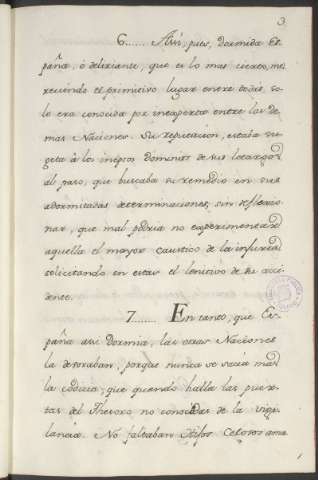 3
6...... Assi, pues, dormida Es
paña, ò delirante, que es lo mas cierto, me
reciendo el primitivo lugar entre todas, so
lo era conocida por inexperta entre las de
mas Naciones. Su reputacion, estaba su
geta à los ineptos domines de sus letargos
al paso, que buscaba su remedio en sus
adormitadas determinaciones, sin reflexio
nar, que mal podria no experimentar
aquella el mayor caustico de la infuria
solicitando en estas el lenitivo de su acci
dente.
7...... En tanto, que Es-
paña assi dormia, las otras Naciones
la devoraban, porque nunca se sacia mas
la codicia, que quando halla las puer
tas del Thesoro, no conocidas de la vigi
lancia. No faltaban Hijos Celosos ama